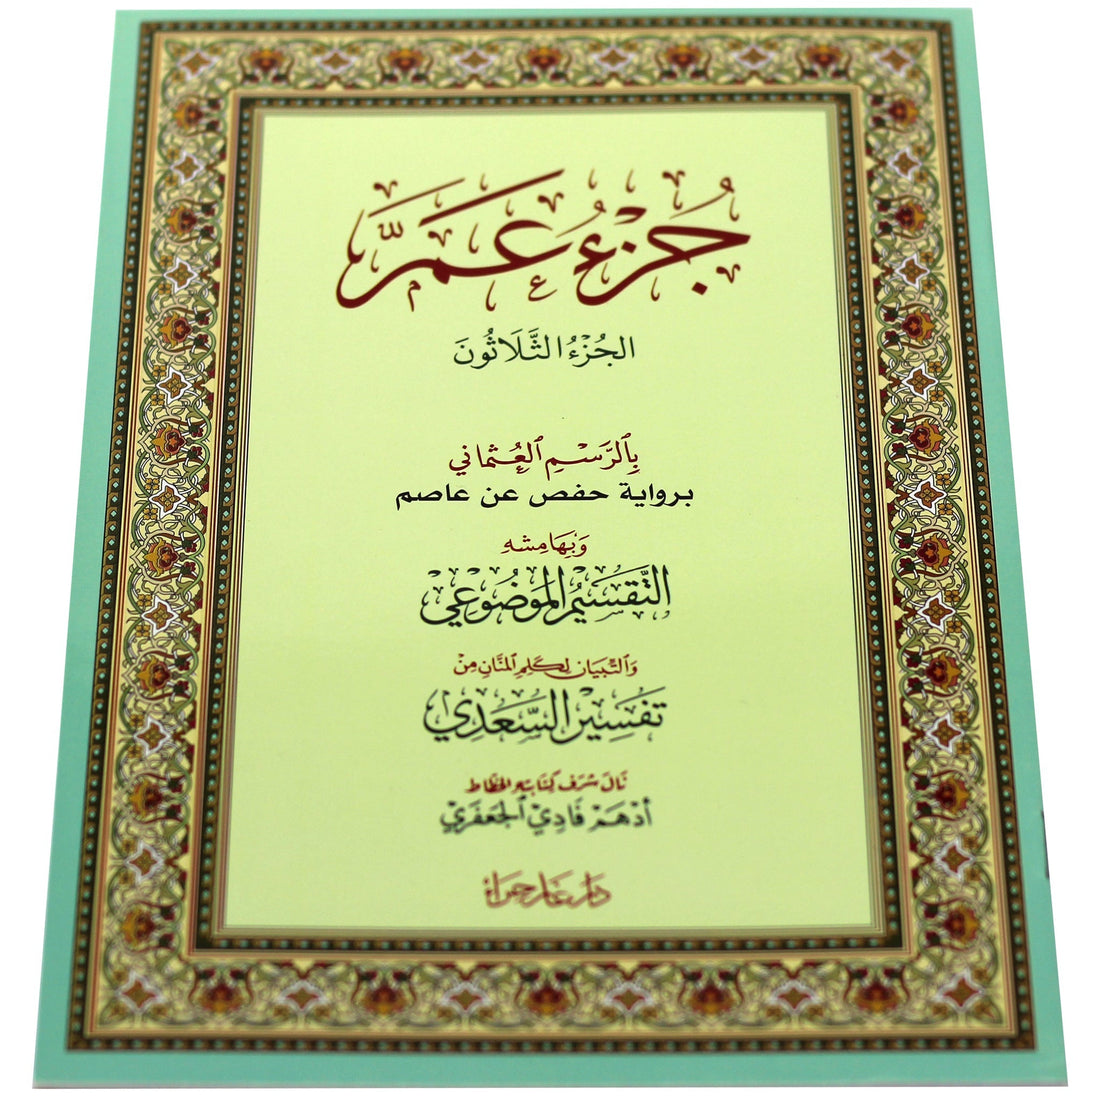 جُزْءُ عَمَّ
الجُزْءُ الثَّلَاثُونَ
بِٱلرَّسْمِ ٱلعُثْمَانِي
برواية حفص عن عاصم
وَبِهَامِشِهِ
التَّقْسِيْمُ المَوْضُوْعِي
وَالتِّبْيَان لِكَلِمِ المَنَّانِ مِنْ
تَفْسِيْر السَّعَدِي
نَالَ شَرَفَ كِتَابَتِهِ الخَطَّاط
أَدْهَمْ فَادِيْ ٱلجَعْفَرِيْ
دَار غَار حِرَاء